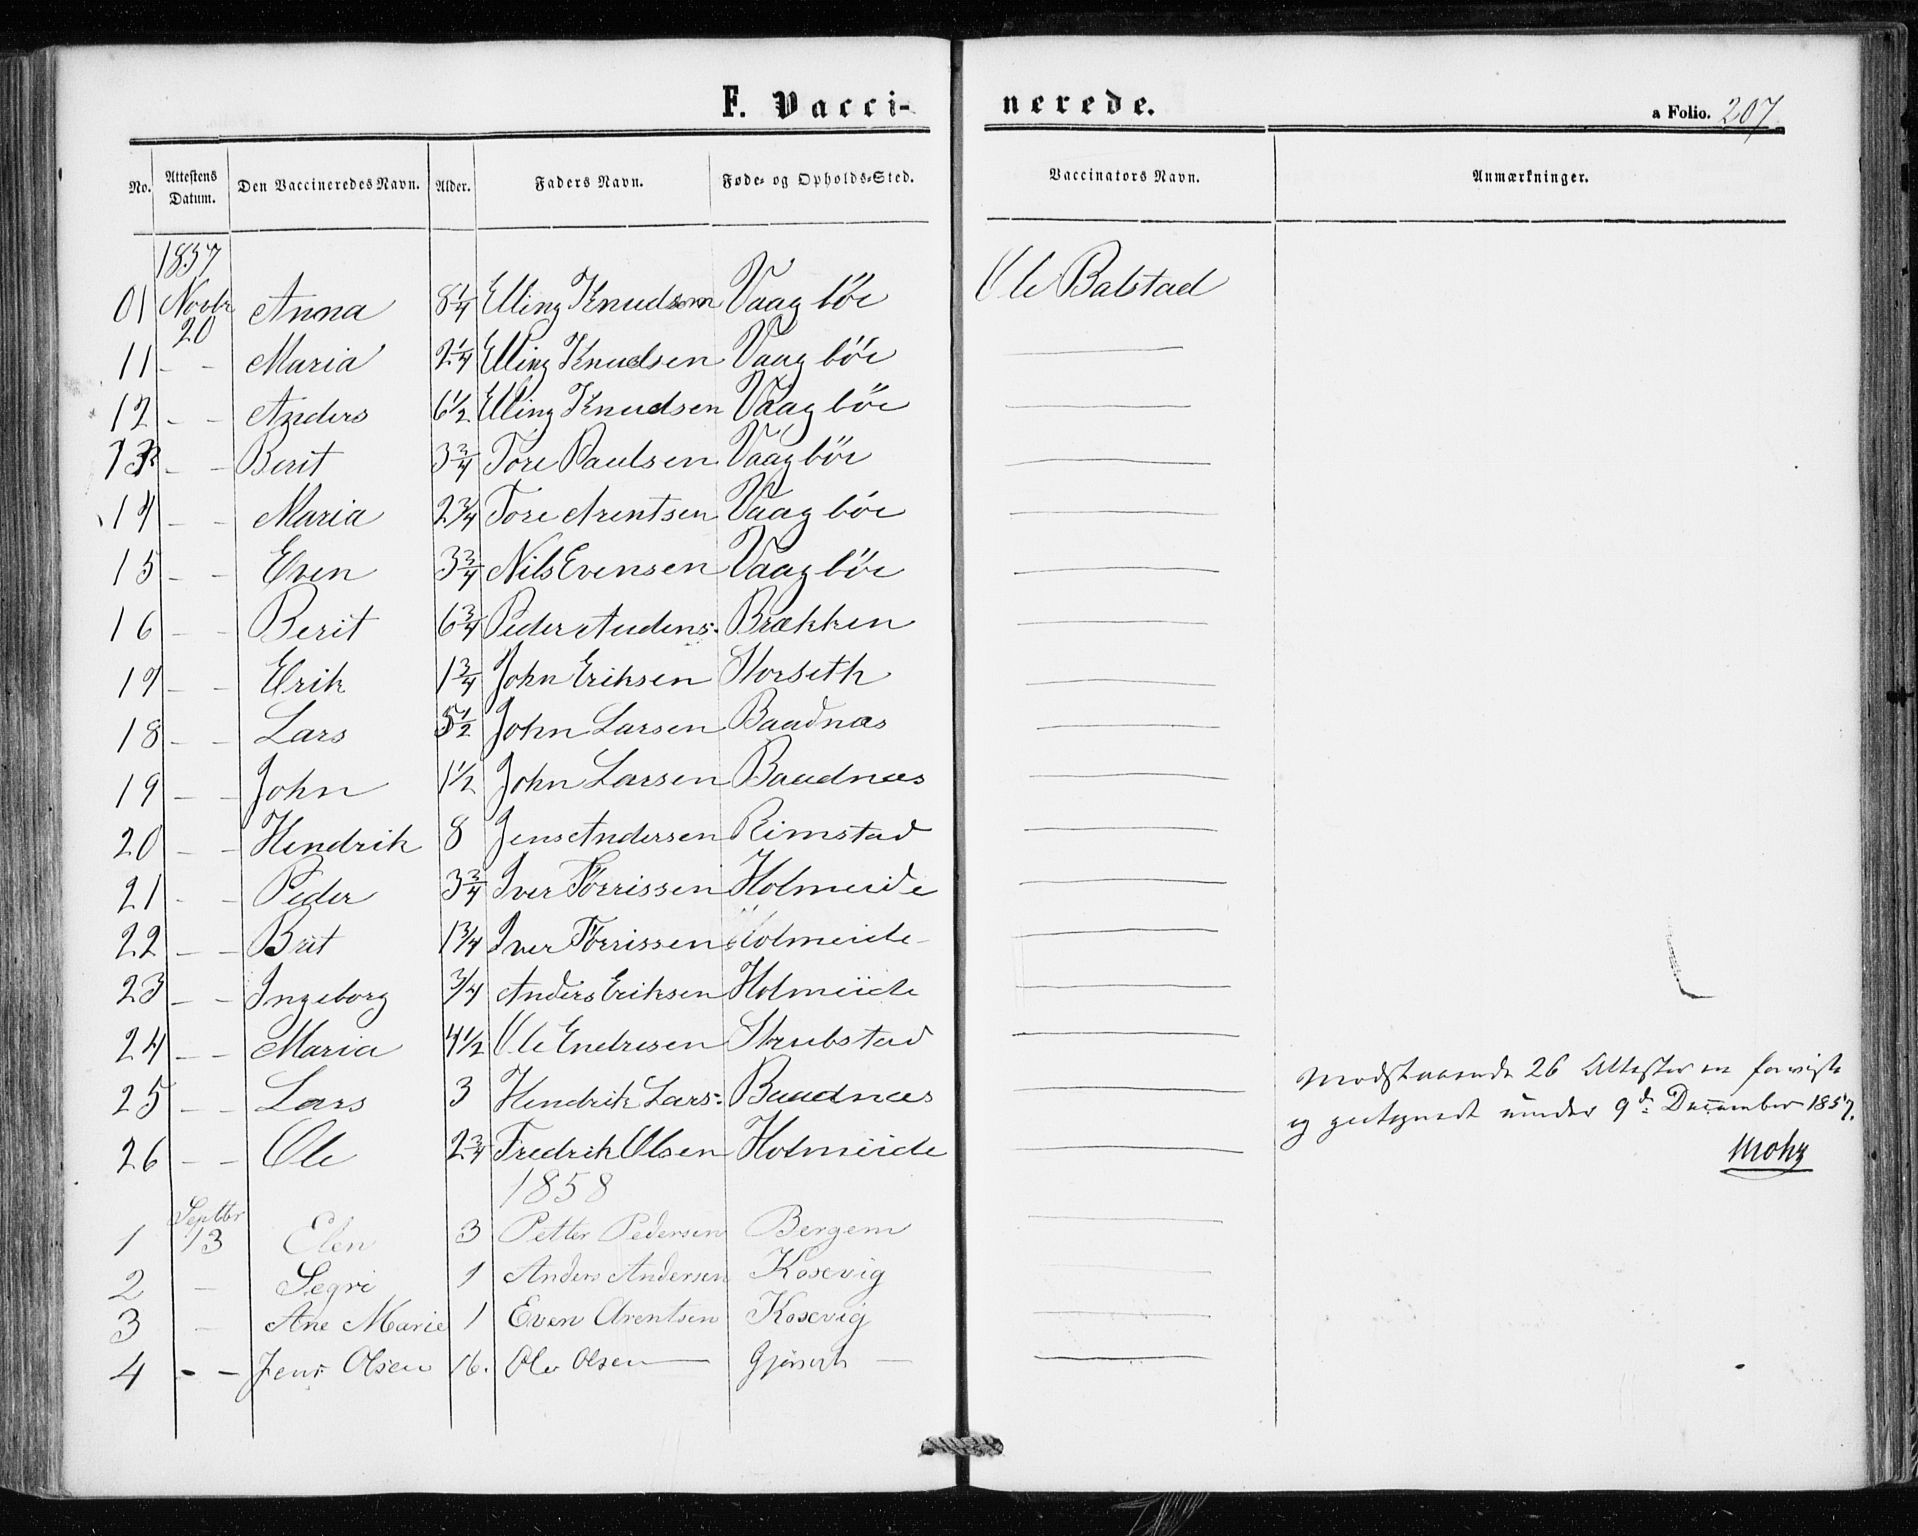 F. Vacci-nerede. a Folio. 207
No. Attestens Datum. Den Vaccineredes Navn. Alder. Faders Navn. Føde- og Opholds-Sted. Vaccinators Navn. Anmærkninger.
1857
01 Novbr 20 Anna 8 1/4 Elling Knudsen Vaagbøe Ole Balstad
11 - - Maria 2 1/4 Elling Knudsen Vaagbøe
12 - - Anders 6 1/2 Elling Knudsen Vaagbøe
13 - - Berit 3 3/4 Tore Paulsen Vaagbøe
14 - - Maria 2 3/4 Tore Arentsen Vaagbøe
15 - - Even 3 3/4 Nils Evensen Vaagbøe
16 - - Berit 6 3/4 Peder Audens: Brækken
17 - - Erik 1 3/4 John Eriksen Storseth
18 - - Lars 5 1/2 John Larsen Baadnæs
19 - - John 1 1/2 John Larsen Baadnæs
20 - - Hendrik 8 Jens Andersen Rimstad
21 - - Peder 3 3/4 Iver Tørrissen Holmeide
22 - - Brit 1 3/4 Iver Tørrissen Holmeide
23 - - Ingeborg 3/4 Anders Eriksen Holmeide
24 - - Maria 4 1/2 Ole Endresen Skrubstad
25 - - Lars 3 Hendrik Lars: Baadnæs
Modstaaende 26 Attester ere foreviste
26 - - Ole 2 3/4 Fredrik Olsen Holmeide
og gjetegnede under 9d: December 1857.
Mohr
1858
1 Septbr 13 Elen 3 Petter Pedersen Bergem
2 - Segri 1 Anders Andersen Kosevig
3 - Ane Marie 1 Even Arentsen Kosevig
4 - - Jens Olsen 16. Ole Olsen Gjørseth